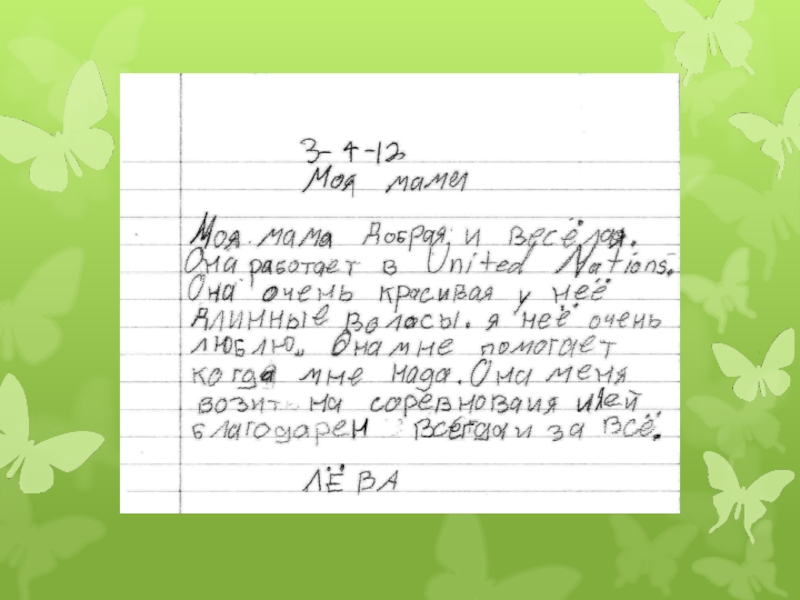 3-4-12
Моя мамы
Моя мама добрая и весёлая.
Она работает в United Nations.
Она очень красивая у неё
длинные валосы. я неё очень
люблю. Она мне помогает
когда мне нада. Она меня
возит на соревноваия и ей
благодарен всегда и за всё.
ЛЁВА